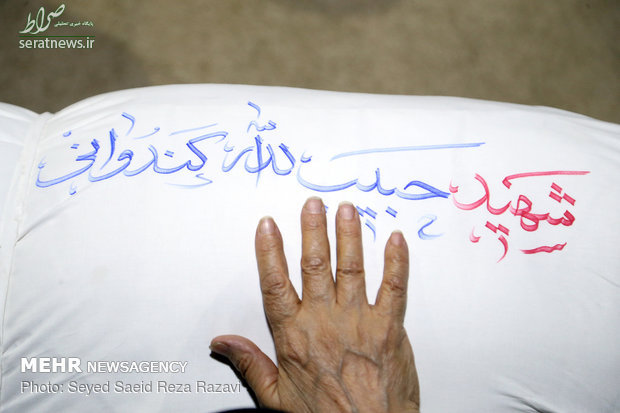 صراط
پایگاه خبری تحلیلی
seratnews.ir
شهید حبیب الله کندوانی
MEHR NEWSAGENCY
Photo: Seyed Saeid Reza Razavi